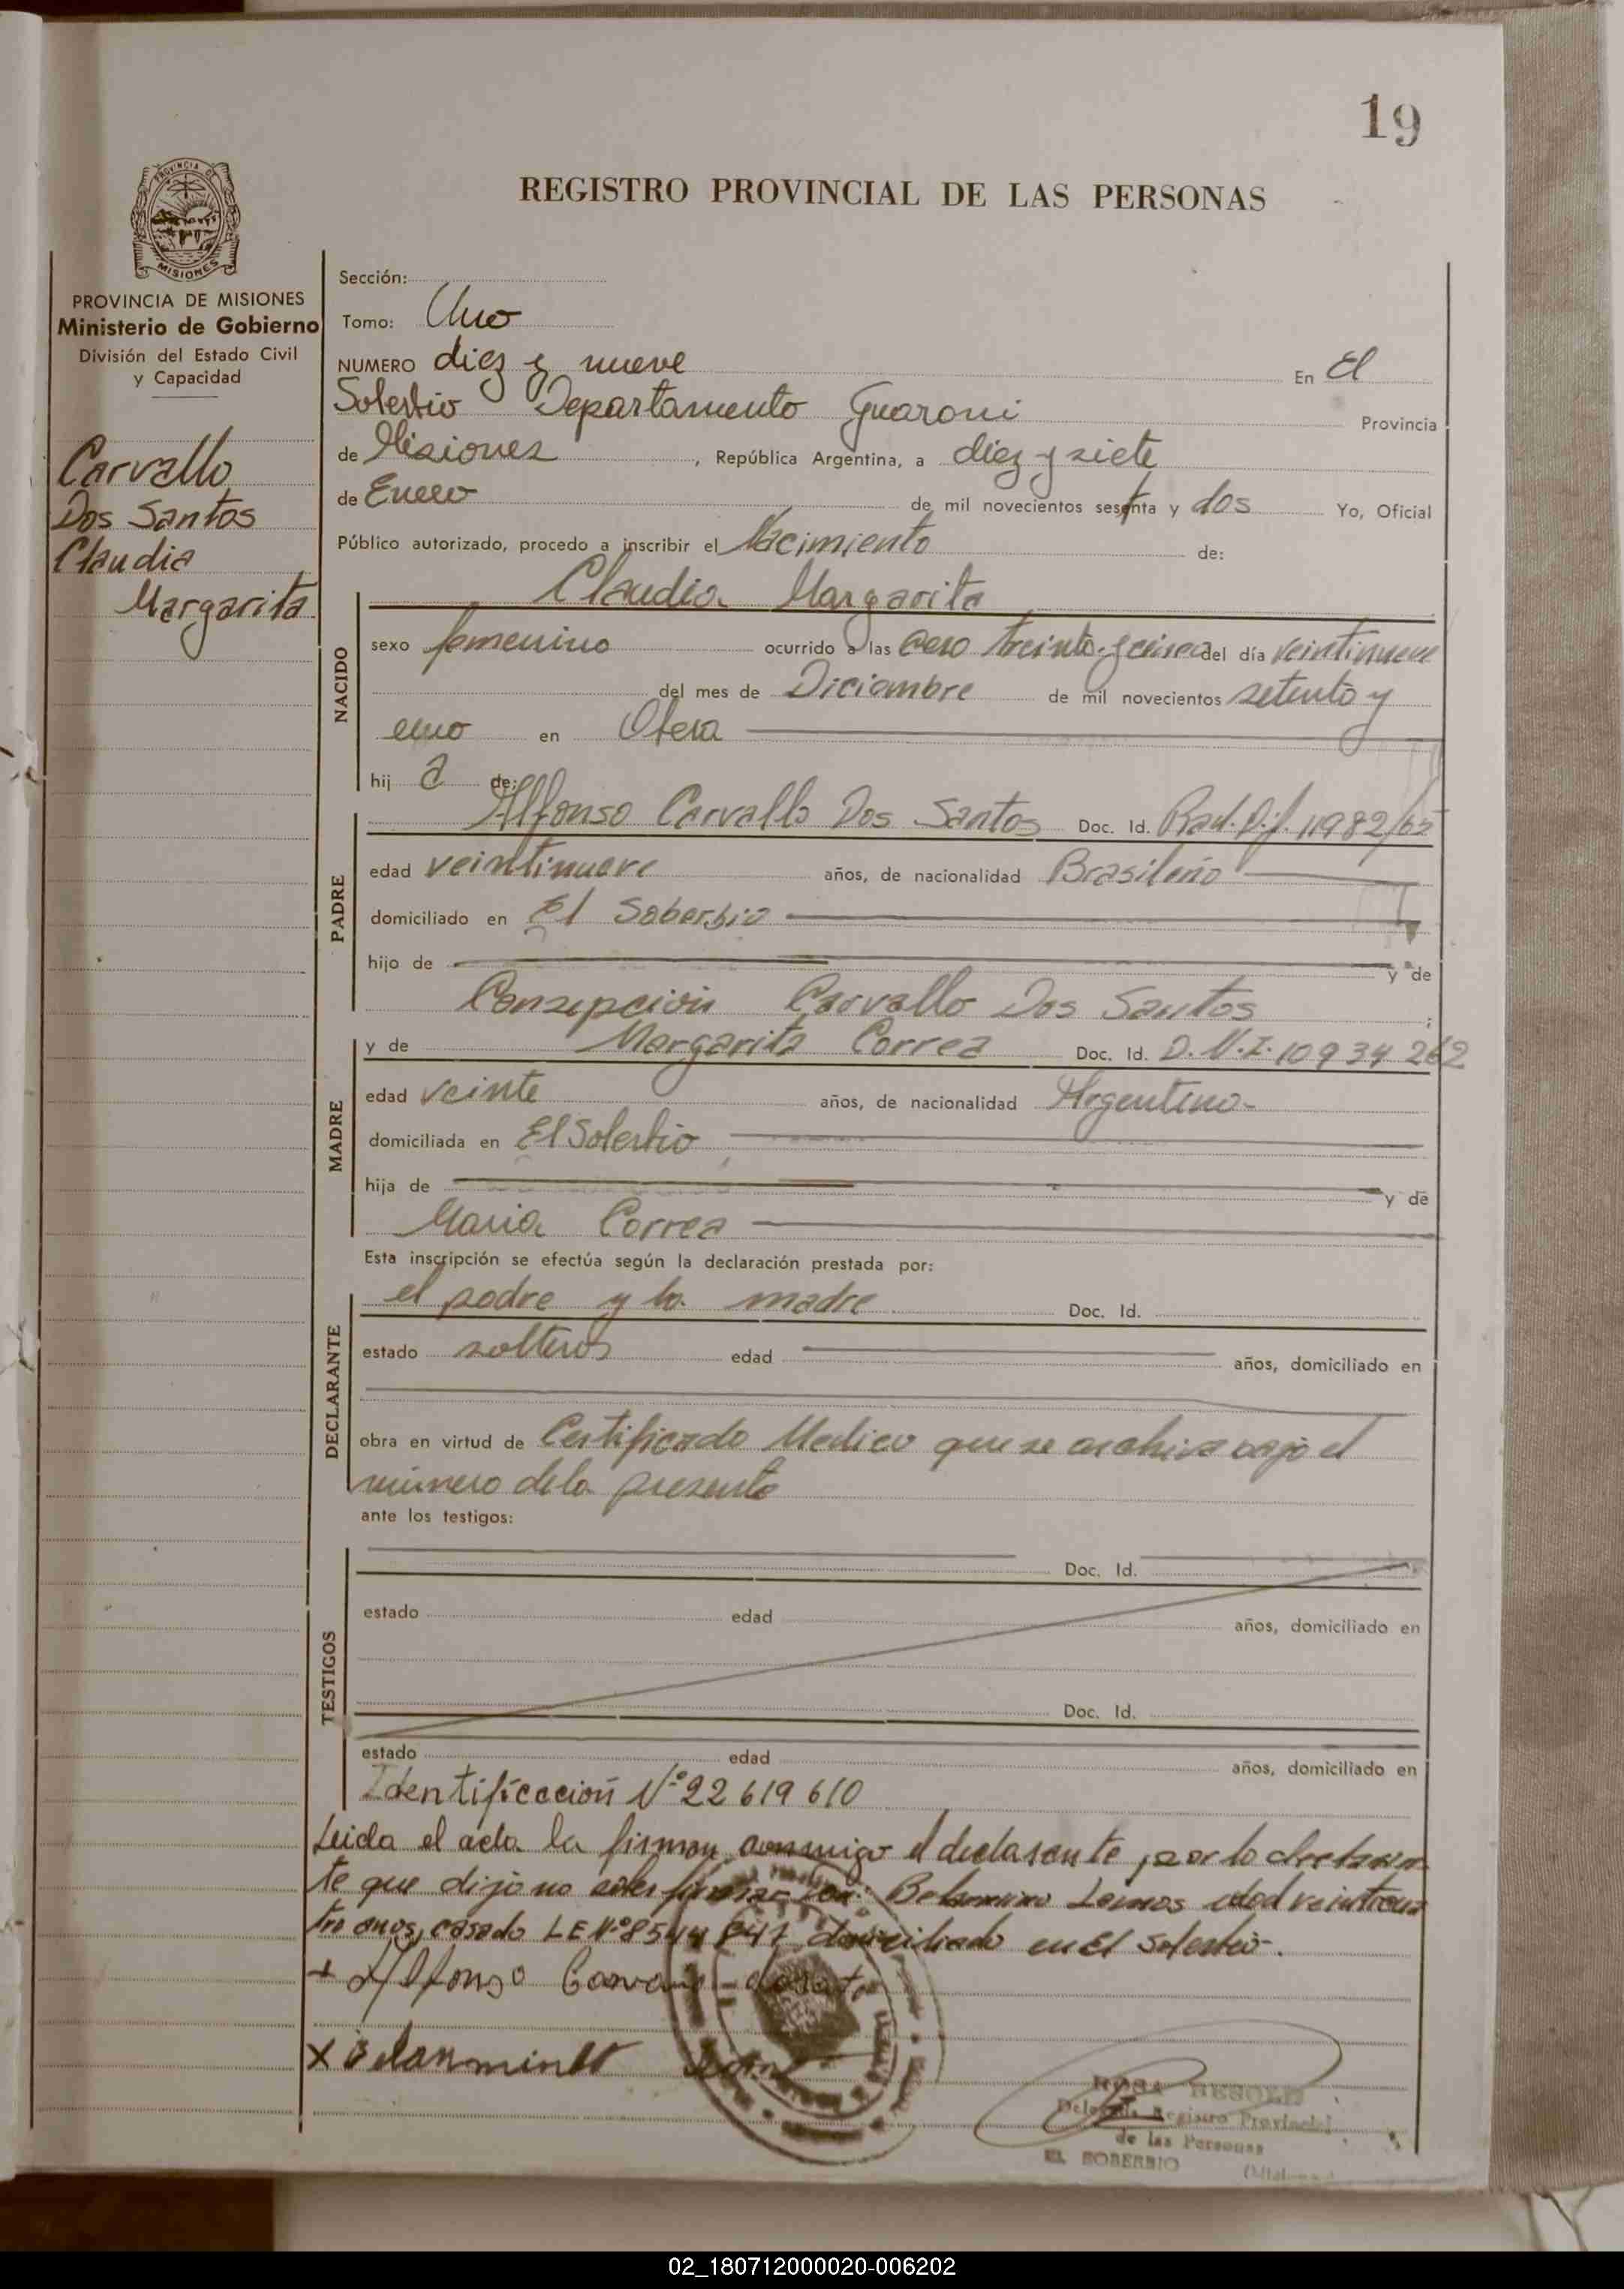 19
REGISTRO PROVINCIAL DE LAS PERSONAS
PROVINCIA DE
MISIONES
PROVINCIA DE MISIONES
Ministerio de Gobierno
División del Estado Civil
y Capacidad
Carvallo
Dos Santos
Claudia
Margarita
Sección:
Tomo: Uno
NUMERO diez y nueve En El
Soberbio Departamento Guarani Provincia
de Misiones , República Argentina, a diez y siete
de Enero de mil novecientos sesenta y dos Yo, Oficial
Público autorizado, procedo a inscribir el Nacimiento de:
Claudia Margarita
NACIDO
sexo femenino ocurrido a las cero treinta y cinco del día veintinueve
del mes de Diciembre de mil novecientos setenta y
uno en Obera
hij a de:
PADRE
Alfonso Carvallo Dos Santos Doc. Id. Rad. 11982/65
edad veintinueve años, de nacionalidad Brasileño
domiciliado en El Soberbio
hijo de y de
Consepción Carvallo Dos Santos ;
MADRE
y de Margarita Correa Doc. Id. D.N.I. 10 934 262
edad veinte años, de nacionalidad Argentina
domiciliada en El Soberbio
hija de y de
Maria Correa
Esta inscripción se efectúa según la declaración prestada por:
DECLARANTE
el padre y la madre Doc. Id.
estado solteros edad años, domiciliado en
obra en virtud de Certificado Medico que se archiva bajo el
número de la presente
ante los testigos:
TESTIGOS
Doc. Id.
estado edad años, domiciliado en
Doc. Id.
estado edad años, domiciliado en
Identificación Nº 22 619 610
Leida el acta la firman conmigo el declarante, por la declaran
te que dijo no saber firmar Belarmino Lemos edad veinticua
tro anos, casado LE Nº 8544 841 domiciliado en El Soberbio.
+ Alfonso
X Belarmino
ROSA
Delegada Registro Provincial
de las Personas
EL SOBERBIO
02_180712000020-006202